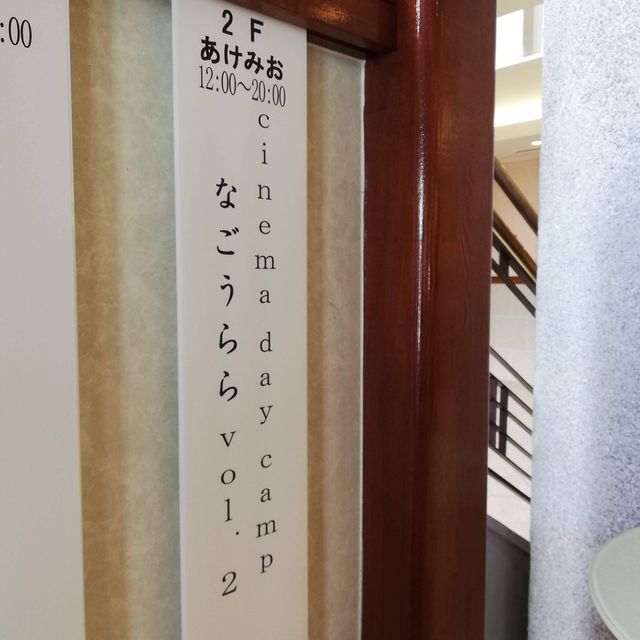 :00
2F
あけみお
12:00～20:00
cinema day camp
なごうらら vol.2